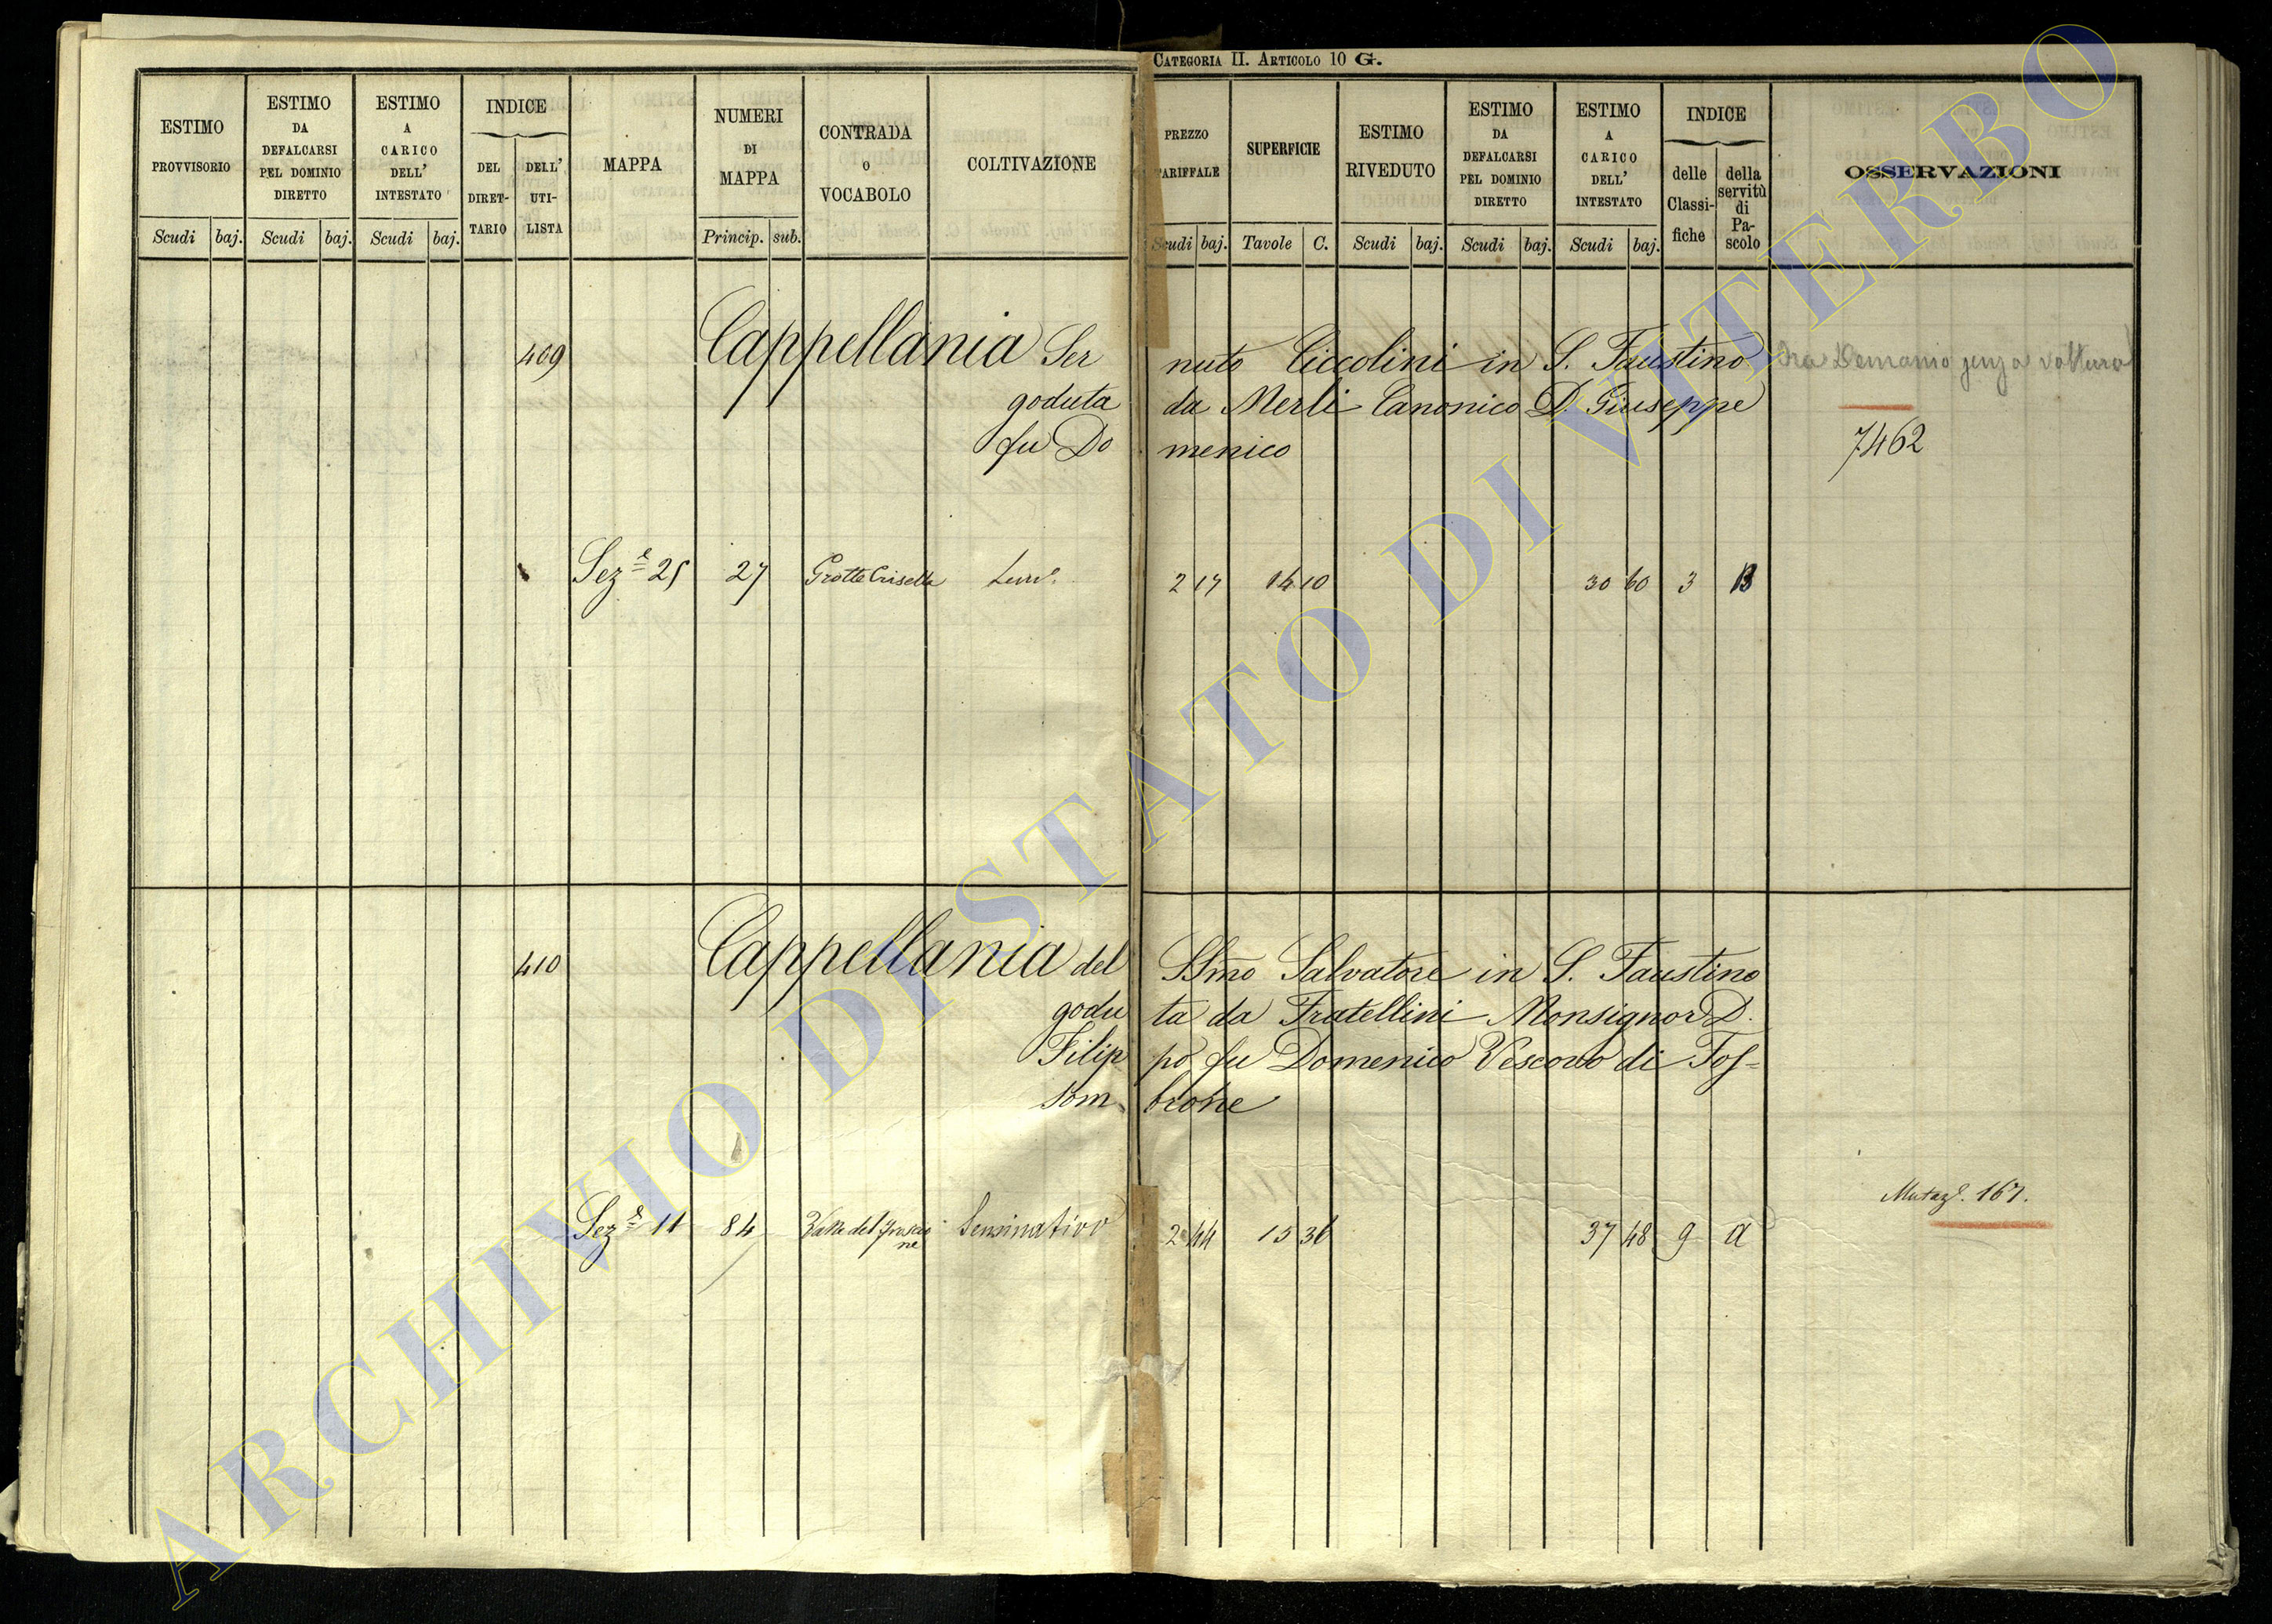 CATEGORIA II. ARTICOLO 10 G.
ESTIMO PROVVISORIO
ESTIMO DA DEFALCARSI PEL DOMINIO DIRETTO
ESTIMO A CARICO DELL' INTESTATO
INDICE
DEL DIRET-TARIO
DELL' UTI-LISTA
MAPPA
NUMERI DI MAPPA
CONTRADA O VOCABOLO
COLTIVAZIONE
PREZZO TARIFFALE
SUPERFICIE
ESTIMO RIVEDUTO
ESTIMO DA DEFALCARSI PEL DOMINIO DIRETTO
ESTIMO A CARICO DELL' INTESTATO
INDICE
delle Classi-fiche
della servitù di Pa-scolo
OSSERVAZIONI
Scudi baj. Scudi baj. Scudi baj. Princip. sub. Scudi baj. Tavole C. Scudi baj. Scudi baj. Scudi baj.
409 Cappellania Ser nuto Ciccolini in S. Faustino
goduta da Merli Canonico D. Giuseppe
fu Do menico
Demanio senza voltura
7462
Sez.e 25 27 Grotte Crisella 2 17 14 10 30 60 3 B
410 Cappellania del SSmo Salvatore in S. Faustino
godu ta da Fratellini Monsignor D.
Filip po fu Domenico Vescovo di Fos=
som brone
Mutaz.e 167.
Sez.e 11 84 Valle del Seminativo 2 44 15 36 37 48 9 a
ARCHIVIO DI STATO DI VITERBO